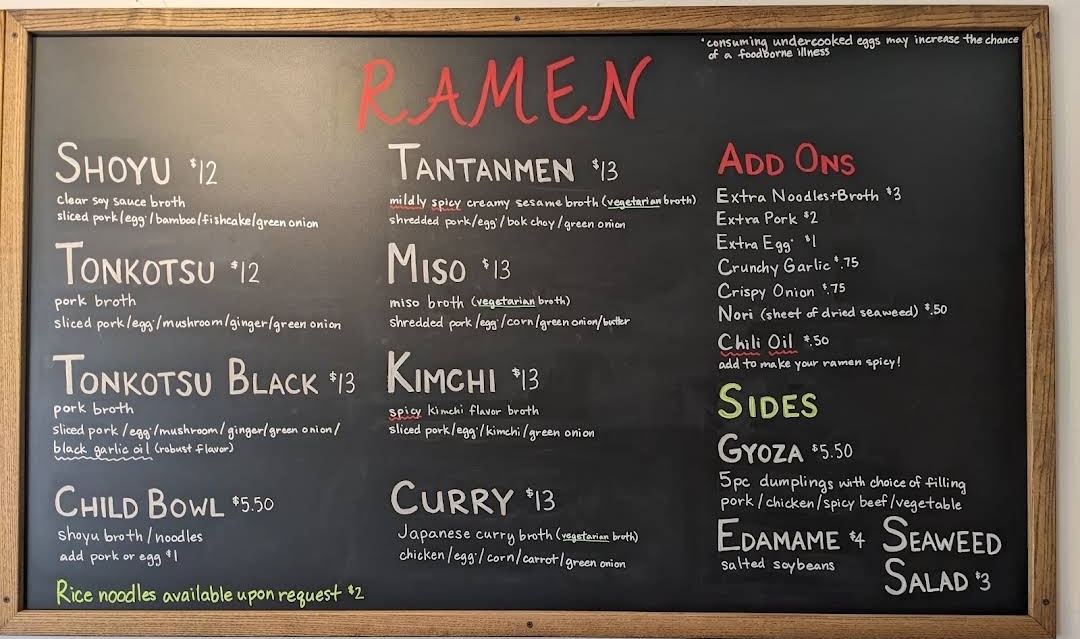 *consuming undercooked eggs may increase the chance
of a foodborne illness
RAMEN
SHOYU $12
clear soy sauce broth
sliced pork/egg*/bamboo/fishcake/green onion
TONKOTSU $12
pork broth
sliced pork/egg*/mushroom/ginger/green onion
TONKOTSU BLACK $13
pork broth
sliced pork/egg*/mushroom/ginger/green onion/
black garlic oil (robust flavor)
CHILD BOWL $5.50
shoyu broth/noodles
add pork or egg $1
Rice noodles available upon request $2
TANTANMEN $13
mildly spicy creamy sesame broth (vegetarian broth)
shredded pork/egg*/bok choy/green onion
MISO $13
miso broth (vegetarian broth)
shredded pork/egg*/corn/green onion/butter
KIMCHI $13
spicy kimchi flavor broth
sliced pork/egg*/kimchi/green onion
CURRY $13
Japanese curry broth (vegetarian broth)
chicken/egg*/corn/carrot/green onion
ADD ONS
Extra Noodles+Broth $3
Extra Pork $2
Extra Egg* $1
Crunchy Garlic $.75
Crispy Onion $.75
Nori (sheet of dried seaweed) $.50
Chili Oil $.50
add to make your ramen spicy!
SIDES
GYOZA $5.50
5pc dumplings with choice of filling
pork/chicken/spicy beef/vegetable
EDAMAME $4
salted soybeans
SEAWEED
SALAD $3